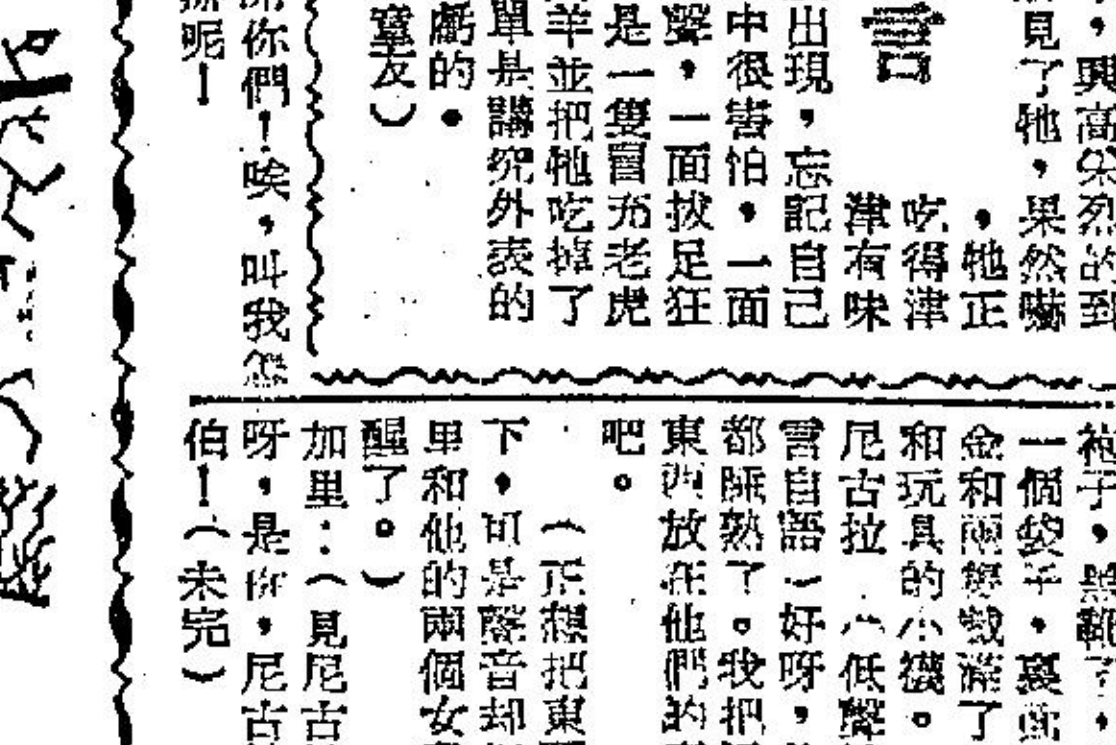 ，興高采烈的到
見了牠，果然嚇
，牠正
吃得津
津有味
言
出現，忘記自己
中很害怕，一面
聲，一面拔足狂
是一隻冒充老虎
羊並把牠吃掉了
單是講究外表的
的。
友）
你們！唉，叫我怎
呢！
袍子，黑靴子，
一個袋子，裏面
金和兩襪裝滿了
和玩具的小襪。
尼古拉（低聲
言自語）好呀，
都睡熟了。我把
東西放在他們的
吧。
（正想把東西
下，可是聲音却
里和他的兩個女
醒了。）
加里：（見尼古
呀，是你，尼古
伯！（未完）